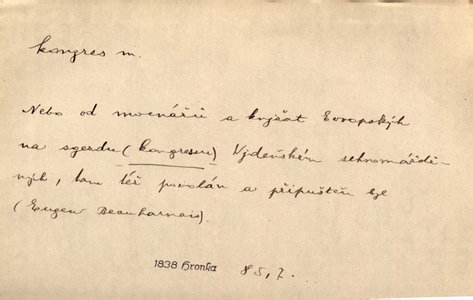 kongres m.
Nebo od mocnářů a knjžat Evropských
na sgezdu (kongresu) Wjdeňském sehromáždě-
ných, tam též powolán a připuštěn gε
(Eugen Beauharnais).
1838 Hronka 85,7.